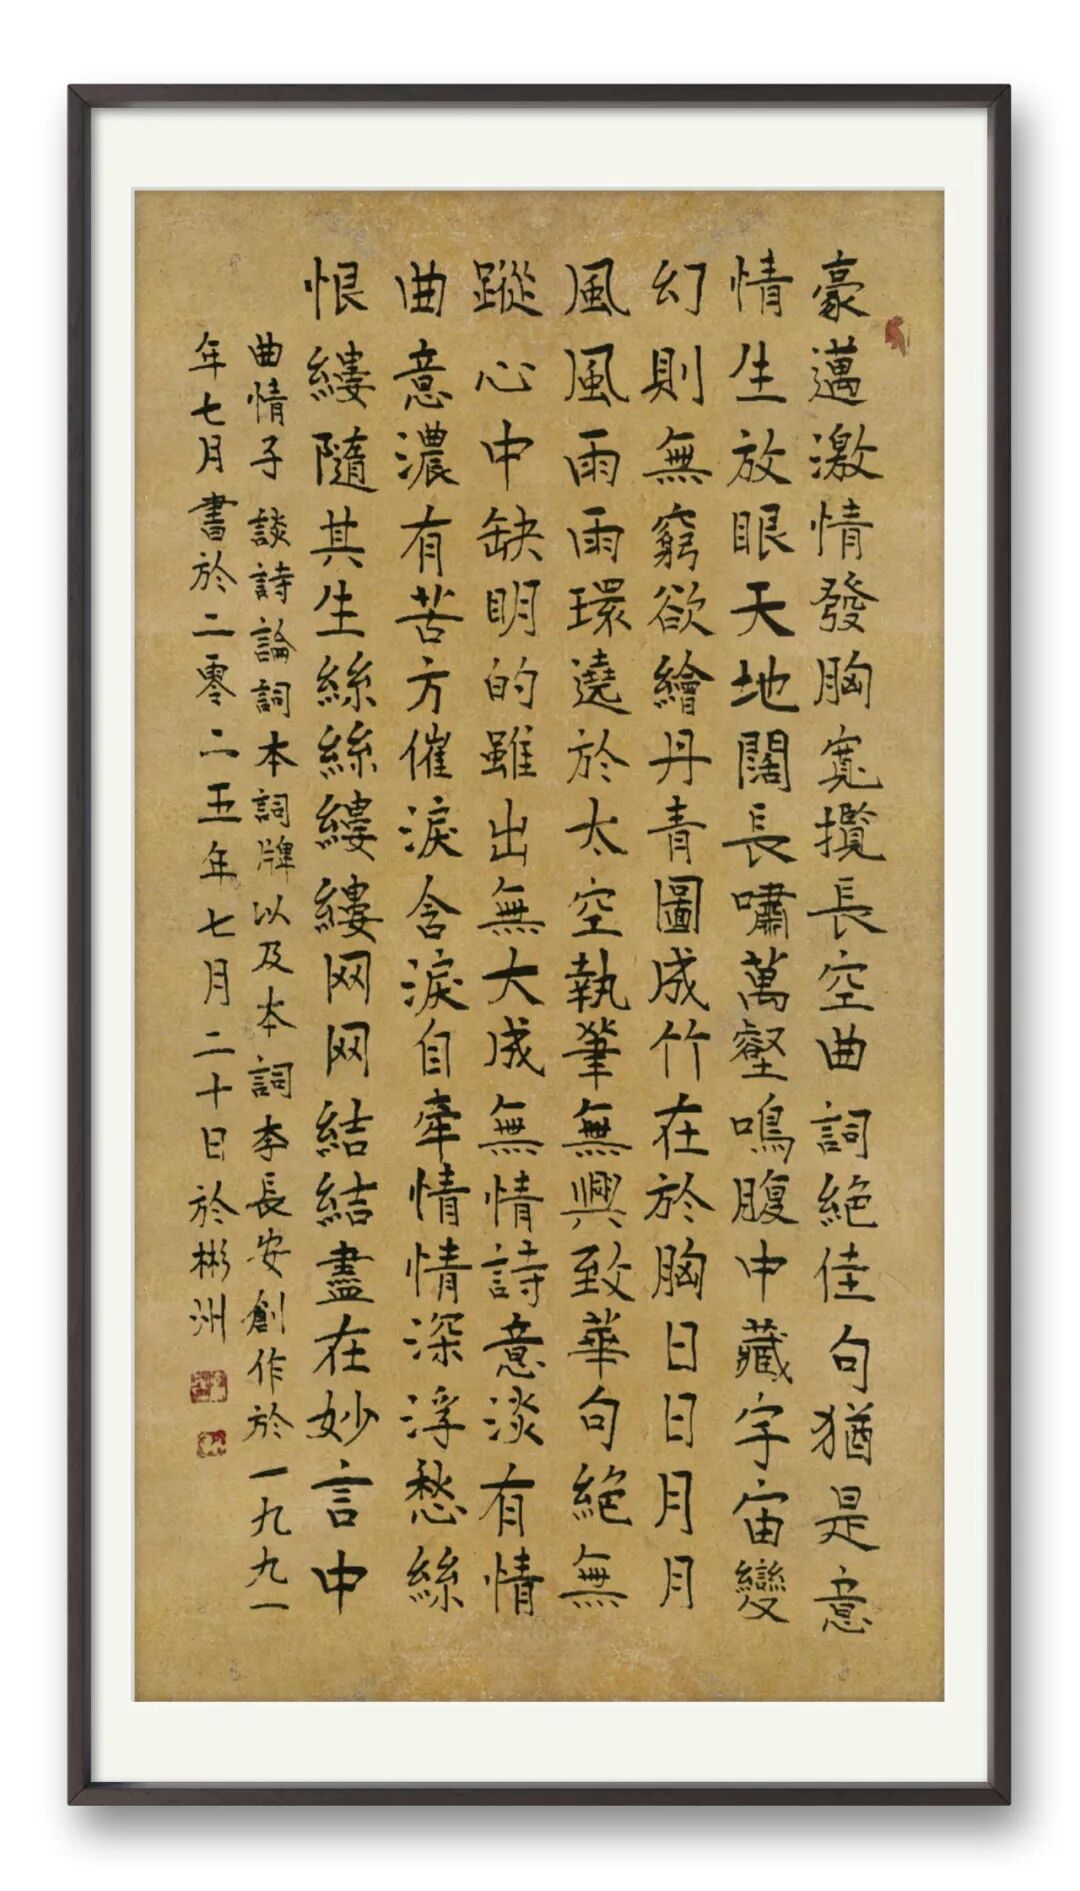 豪邁激情發胸寬攬長空曲詞絕佳句猶是意
情生放眼天地闊長嘯萬壑鳴腹中藏宇宙變
幻則無窮欲繪丹青圖成竹在於胸日日月月
風風雨雨環遶於太空執筆無興致華句絕無
蹤心中缺明的雖出無大成無情詩意淡有情
曲意濃有苦方催淚含淚自牽情情深浮愁絲
恨縷隨其生絲絲縷縷网网結結盡在妙言中
曲情子談詩論詞本詞牌以及本詞李長安創作於一九九一
年七月書於二零二五年七月二十日於彬州